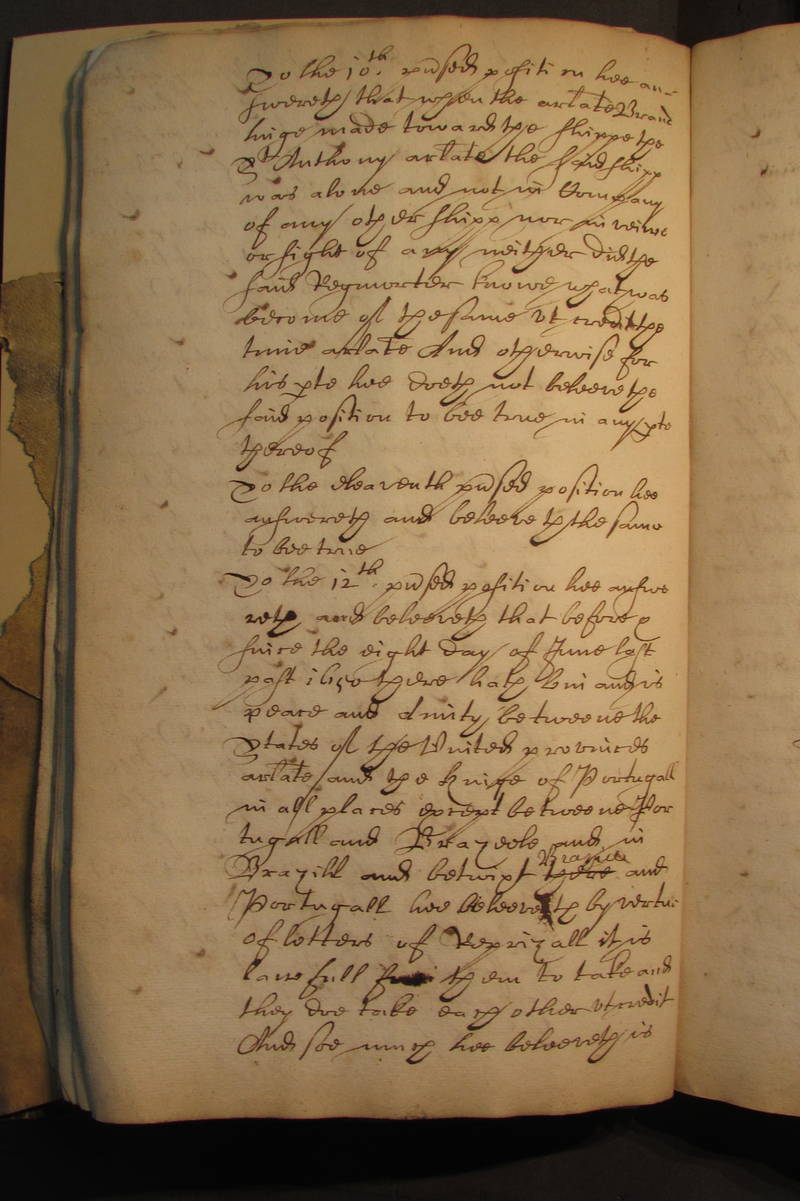 To the 10th. p̄vsed position hee an-
swereth that when the arl̄ate Brand
huige made towards the shippe the
St Anthony arl̄ate the said shipp
was alone and not in Company
of any other shipp nor in veiwe
or sight of any neither did the
said Regmorter knowe what was
become of the same vt credit the
time arl̄ate And otherwise for
his p̱te hee doeth not beleeve the
said position to bee true in any p̱te
thereof
To the eleaventh p̄vsed position hee
answereth and beleeveth the same
to bee true
To the 12th. p̄vsed position hee answe
reth and beleeveth that before &
since the eight day of June last
past 1650 there hath bin and is
peace and Amity betweene the
States of the United provinces
arl̄ate and the Kinge of Portugall
in all places except betweene Por
tugall and Brazeele and in
Brazill and betwixt Brazill and
Portugall hee beleeveth by vertue
of letters of Reprizall it is
lawfull them to take and
they doe take each other vt credit
And soe much hee beleeveth is